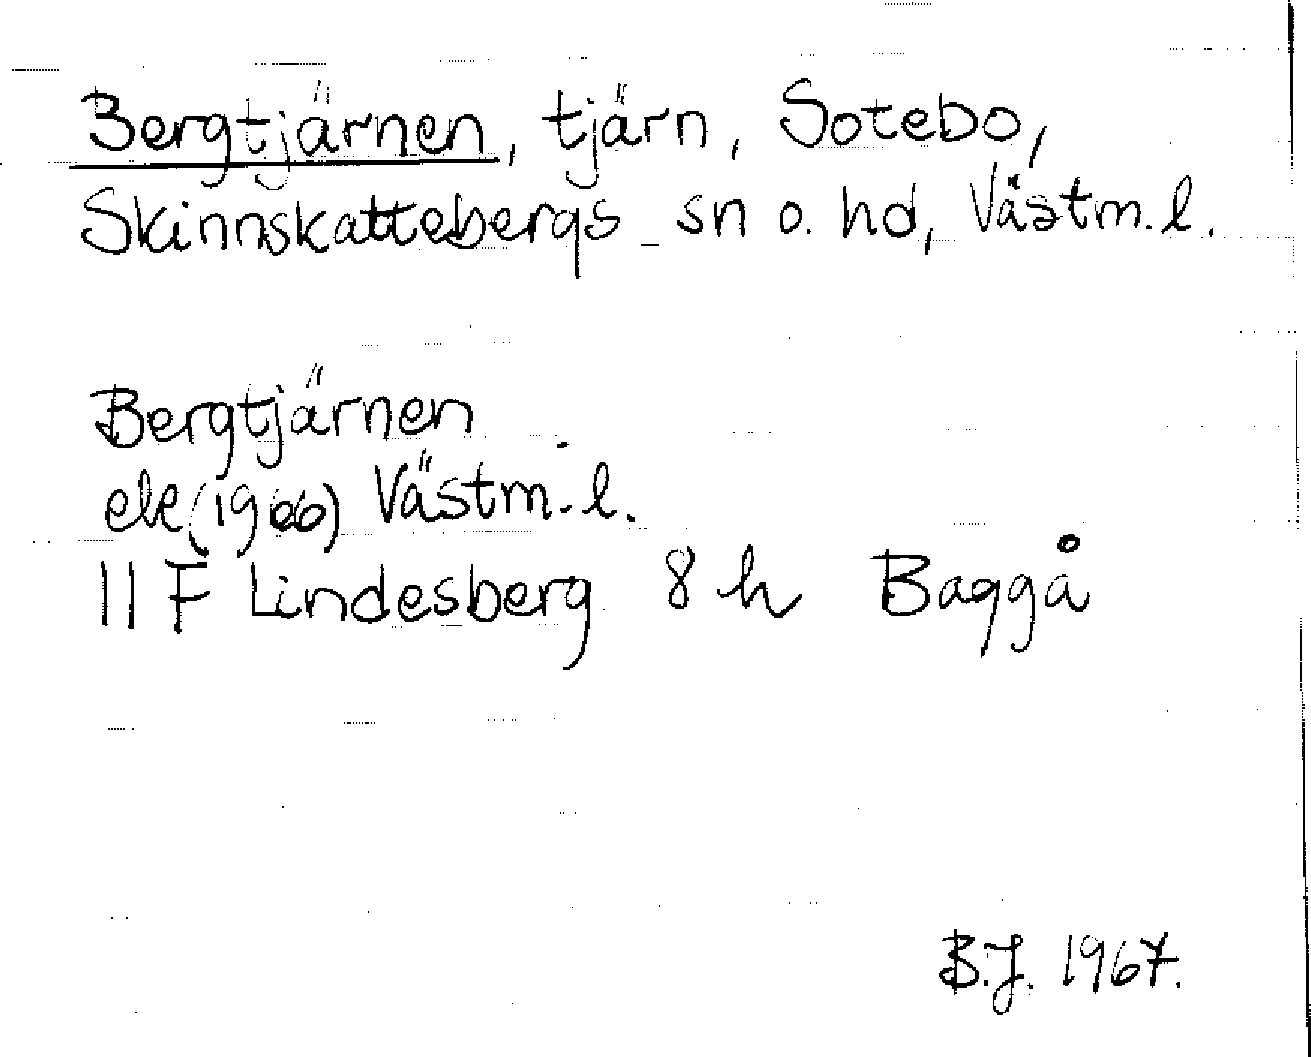 Bergtjärnen, tjärn, Sotebo,
Skinnskattebergs sn o. hd, Västm. l.
Bergtjärnen
ek (1966) Västm. l.
11 F Lindesberg 8 h Baggå
B.J. 1967.